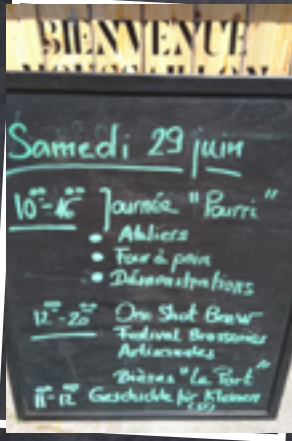 BIENVENUE
Samedi 29 juin
10⁰⁰-16⁰⁰ Journée "Pourri"
• Ateliers
• Four à pain
• Démonstrations
12⁰⁰-20⁰⁰ One Shot Brew
Festival Brasseries
Artisanales
Bières "Le Port"
11-12 Geschichte für Kleinen